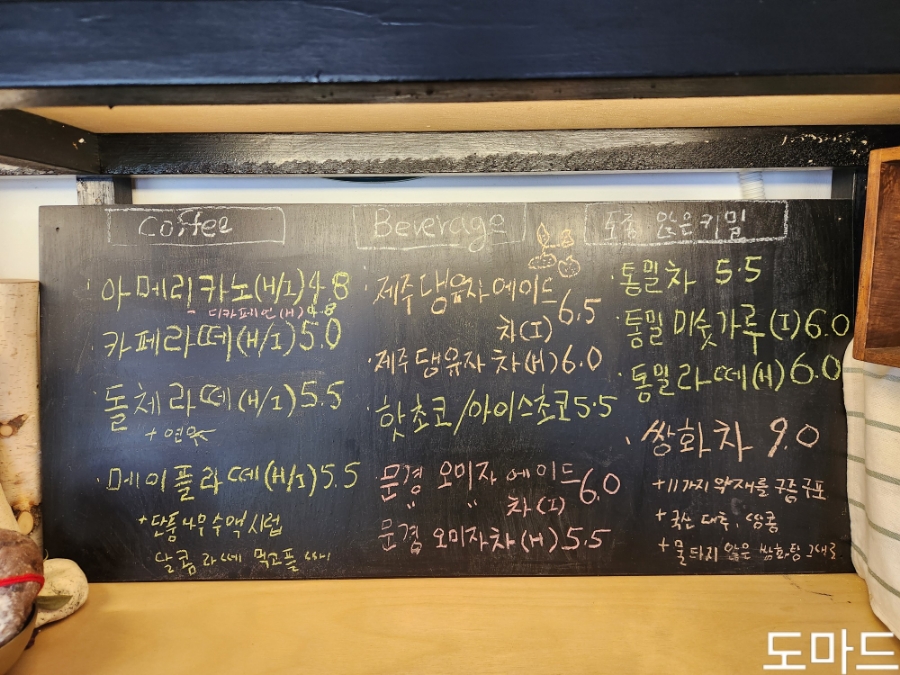 Coffee
아메리카노(H/I) 4.8
- 디카페인(H) 4.8
카페라떼(H/I) 5.0
돌체라떼(H/I) 5.5
+ 연유
메이플라떼(H/I) 5.5
+ 단풍나무수액시럽
달콤라떼 먹고플 때
Beverage
제주댕유자에이드 6.5
차(I)
제주댕유자차(H) 6.0
핫초코/아이스초코 5.5
문경 오미자 에이드 6.0
" " 차(I)
문경 오미자차(H) 5.5
않은키밀
통밀차 5.5
통밀미숫가루(I) 6.0
통밀라떼(H) 6.0
쌍화차 9.0
+ 11가지 약재를
+ 국산 대추, 땅콩
+ 물타지 않은 쌍화탕 그대로
도마드